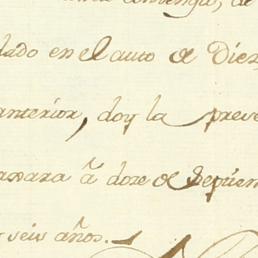 dado en el auto de Diez
anterior, doy la preve
á doze de Septiem
seis años.